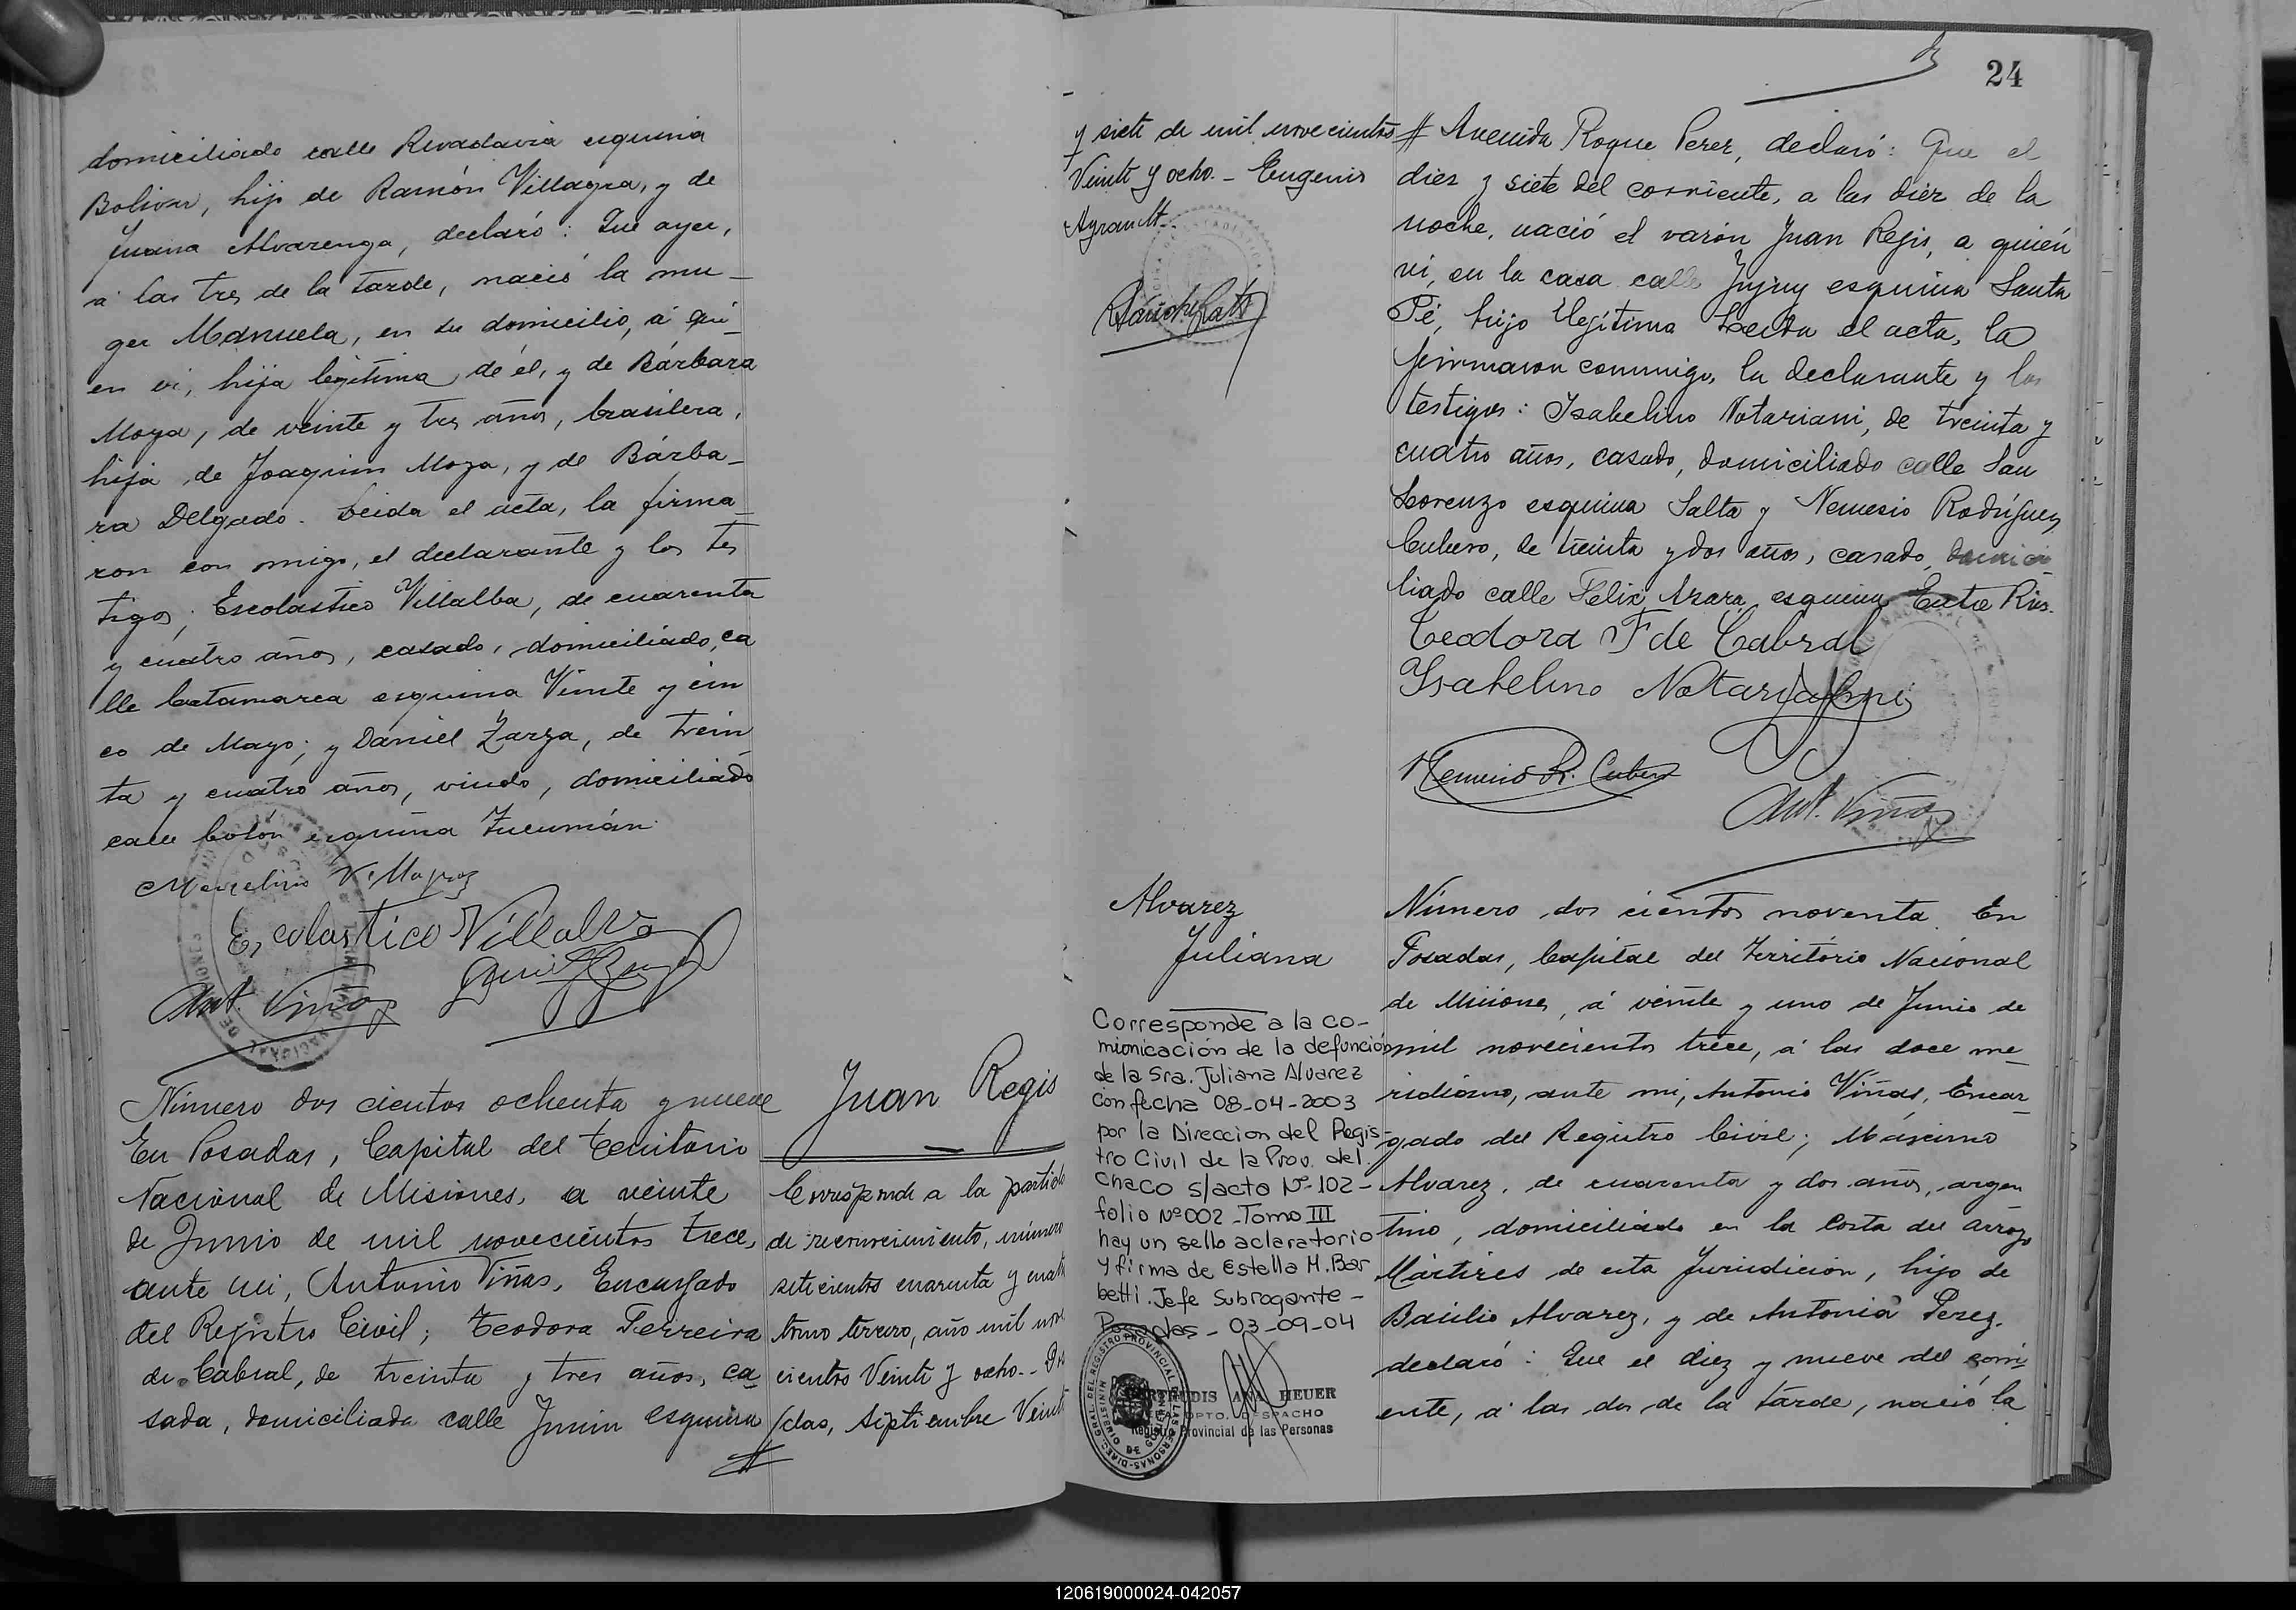 domiciliado calle Rivadavia esquina
Bolivar, hijo de Ramón Villagra, y de
Juana Alvarenga, declaró: Que ayer,
a las tres de la tarde, nació la mu-
ger Manuela, en su domicilio, á qui-
en vi, hija legítima de él, y de Bárbara
Moya, de veinte y tres años, brasilera,
hija de Joaquim Moza, y de Bárba-
ra Delgado. Leida el acta, la firma-
ron con migo, el declarante y los tes
tigos; Escolastico Villalba, de cuarenta
y cuatro años, casado, domiciliado, ca
lle Catamarca esquina Veinte y cin
co de Mayo; y Daniel Zarza, de trein
ta y cuatro años, viudo, domiciliado
calle Colón esquina Tucumán.
Marcelino Villagra
Escolastico Villalba
Ant. Viñas
Número dos cientos ochenta y nueve
En Posadas, Capital del Territorio
Nacional de Misiones, a veinte
de Junio de mil novecientos trece,
ante mi, Antonio Viñas, Encargado
del Registro Civil; Teodora Ferreira
de Cabral, de treinta y tres años, ca-
sada, domiciliada calle Junin esquina
#
Juan Regis
Corresponde a la partida
de reconocimiento, número
setecientos cuarenta y cuatro
tomo tercero, año mil nov
cientos Veinte y ocho.- Po
sadas, Septiembre Veinte
y siete de mil novecientos
Veinte y ocho.- Eugenio
24
# Avenida Roque Perez, declaró: Que el
diez y siete del corriente, a las diez de la
noche, nació el varón Juan Regis, a quién
vi, en la casa calle Jujuy esquina Santa
Fé, hijo Ilegítima Leida el acta, la
firmaron conmigo, la declarante y los
testigos: Isabelino Notariani, de treinta y
cuatro años, casado, domiciliado calle San
Lorenzo esquina Salta y Nemesio Rodríguez
Cubero, de treinta y dos años, casado, domici-
liado calle Felix Azara esquina Entre Rios.
Teodora F de Cabral
Isabelino Notariani
Nemesio R. Cubero
Ant. Viñas
Alvarez
Juliana
Corresponde a la co-
mionicación de la defunción
de la Sra. Juliana Alvarez
con fecha 08-04-2003
por la Direccion del Regis-
tro Civil de la Prov. del
Chaco s/acta Nº-102-
folio Nº002-Tomo III
hay un sello aclaratorio
y firma de Estella M. Bar
betti. Jefe Subrogante-
Posadas-03-09-04
GERTRUDIS ANA HEUER
DPTO. DESPACHO
Registro Provincial de las Personas
Número dos cientos noventa. En
Posadas, Capital del Territorio Nacional
de Misiones, á veinte y uno de Junio de
mil novecientos trece, á las doce me-
ridiano, ante mi, Antonio Viñas, Encar-
gado del Registro Civil; Máximo
Alvarez, de cuarenta y dos años, argen
tino, domiciliado en la costa del arroyo
Mártires de esta Jurisdicion, hijo de
Basilio Alvarez, y de Antonia Perez,
declaró: Que el diez y nueve del corri-
ente, á las dos de la tarde, nació la
120619000024-042057